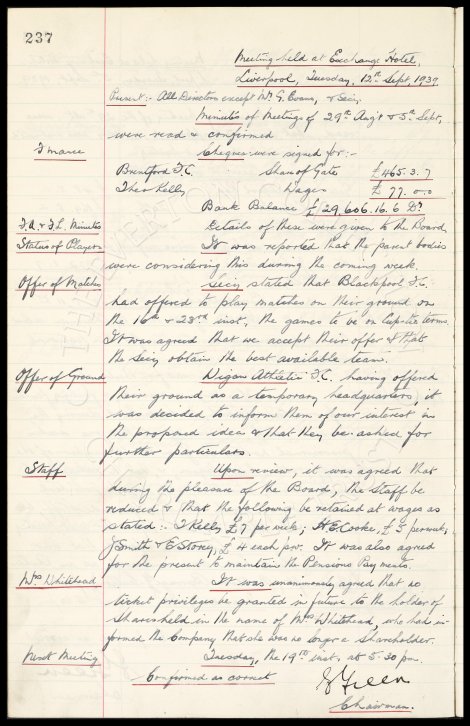 237
Meeting held at Exchange Hotel,
Liverpool, Tuesday, 12th Sept, 1939
Present:- All Directors except Mr G. Evans, & Secy.
Minutes of Meetings of 29th Augt & 5th Sept,
were read & confirmed
Finance Cheques were signed for:-
Brentford F.C. Share of Gate £465. 3. 7
Theo Kelly Wages £ 77. 0. 0
Bank Balance £ 29,606. 16. 6 Dr
F.A. & F.L. Minutes Details of these were given to the Board,
Status of Players It was reported that the parent bodies
were considering this during the coming week,
Offer of Matches Secy stated that Blackpool F.C.
had offered to play matches on their ground on
the 16th & 23rd inst, the games to be on Cup-tie terms.
It was agreed that we accept their offer & that
the Secy obtain the best available team.
Offer of Ground Wigan Athletic F.C. having offered
their ground as a temporary headquarters, it
was decided to inform them of our interest in
the proposed idea & that they be asked for
further particulars.
Staff Upon review, it was agreed that
during the pleasure of the Board, the Staff be
reduced & that the following be retained at wages as
stated:- T Kelly £7 per week; H E Cooke, £5 per week;
J Smith & E Storey, £4 each p.w. It was also agreed
for the present to maintain the Pensions Payments.
Mrs Whitehead It was unanimously agreed that no
ticket privileges be granted in future to the holder of
Shares held in the name of Mrs Whitehead, who had in-
formed the Company that she was no longer a Shareholder.
Next Meeting Tuesday, the 19th inst, at 5-30 pm.
Confirmed as correct
Green
Chairman.